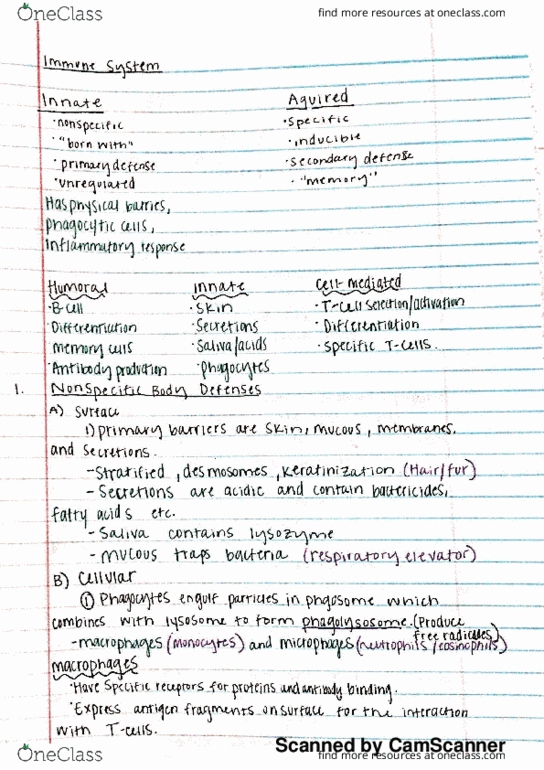 OneClass find more resources at oneclass.com
Immune System
Innate Aquired
·nonspecific ·specific
·"born with" ·inducible
·primary defense ·secondary defense
·unregulated ·"memory"
Has physical barries,
phagocytic cells,
inflammatory response
Humoral Innate Cell-mediated
·B-cell ·Skin ·T-cell selection/activation
Differentiation Secretions ·Differentiation
memory cells ·Saliva/acids ·specific T-cells.
·Antibody production ·Phagocytes
1. Nonspecific Body Defenses
A) Surface
1) primary barriers are skin, mucous, membranes.
and secretions.
-Stratified, desmosomes, keratinization (Hair/fur)
- Secretions are acidic and contain bactericides,
fatty acids etc.
- Saliva contains lysozyme
- Mucous traps bacteria (respiratory elevator)
B) Cellular
① Phagocytes engulf particles in phgosome which
combines with lysosome to form phagolysosome. (Produce
free radicales)
-macrophages (monocytes) and microphages (neutrophils/eosinophils)
macrophages
·Have specific receptors for proteins and antibody binding.
·Express antigen fragments on surface for the interaction
with T-cells.
Scanned by CamScanner
OneClass find more resources at oneclass.com